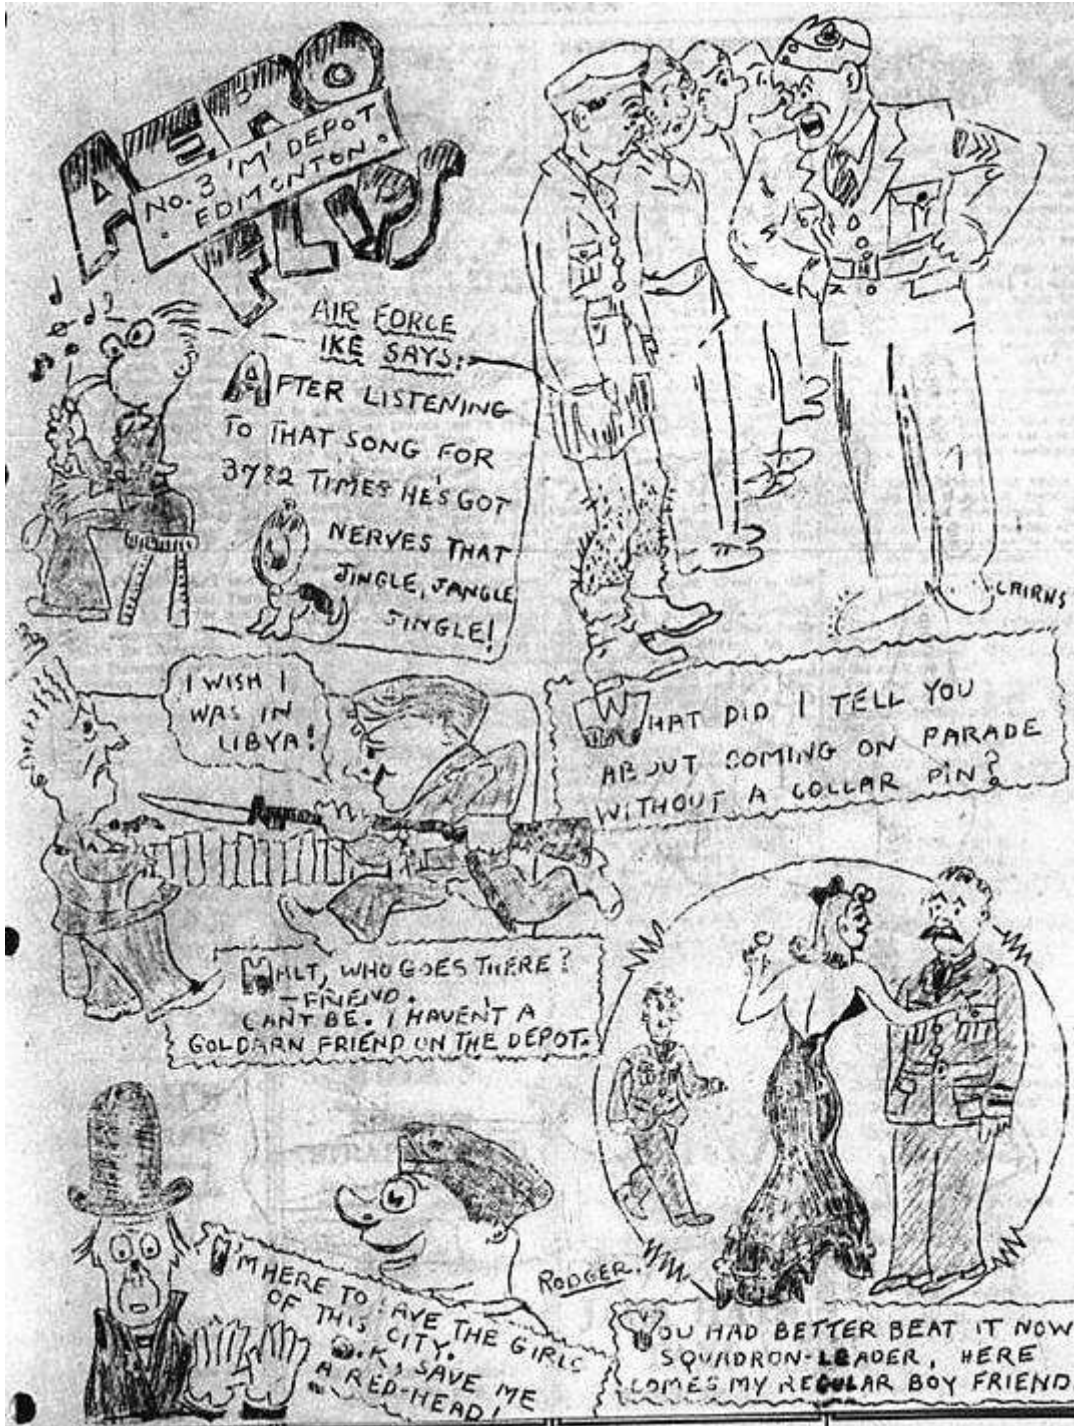 AERO
NO. 3 'M' DEPOT
EDMONTON.
FLIPS
AIR FORCE
IKE SAYS:
AFTER LISTENING
TO THAT SONG FOR
3782 TIMES HE'S GOT
NERVES THAT
JINGLE, JANGLE
JINGLE!
CAIRNS
WHAT DID I TELL YOU
ABOUT COMING ON PARADE
WITHOUT A COLLAR PIN?
I WISH I
WAS IN
LIBYA!
HALT, WHO GOES THERE?
—FRIEND.
CAN'T BE. I HAVEN'T A
GOLDARN FRIEND ON THE DEPOT.
I'M HERE TO SAVE THE GIRLS
OF THIS CITY.
O.K., SAVE ME
A RED-HEAD!
RODGER.
YOU HAD BETTER BEAT IT NOW
SQUADRON-LEADER, HERE
COMES MY REGULAR BOY FRIEND